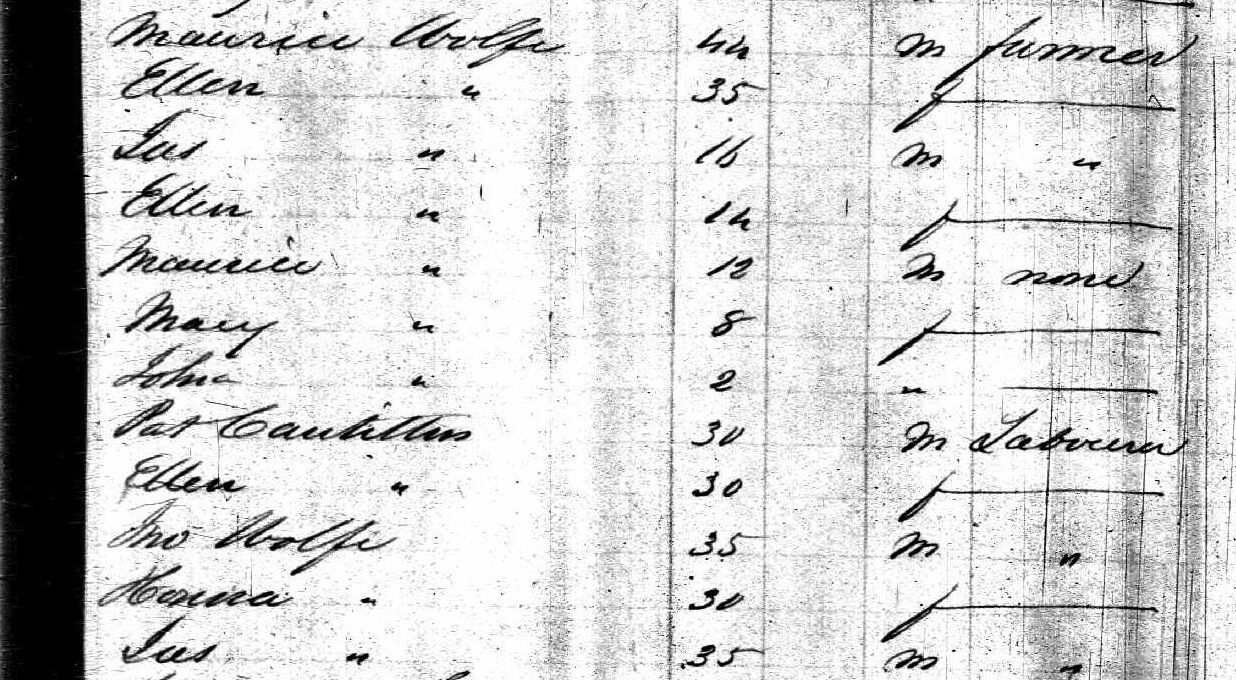 Maurice Wolfe 44 m farmer
Ellen " 35 f
Jas " 16 m "
Ellen " 14 f
Maurice " 12 m none
Mary " 8 f
John " 2 "
Pat 30 m Labourer
Ellen " 30 f
Jno Wolfe 35 m "
Hanna " 30 f
Jas " 35 m "